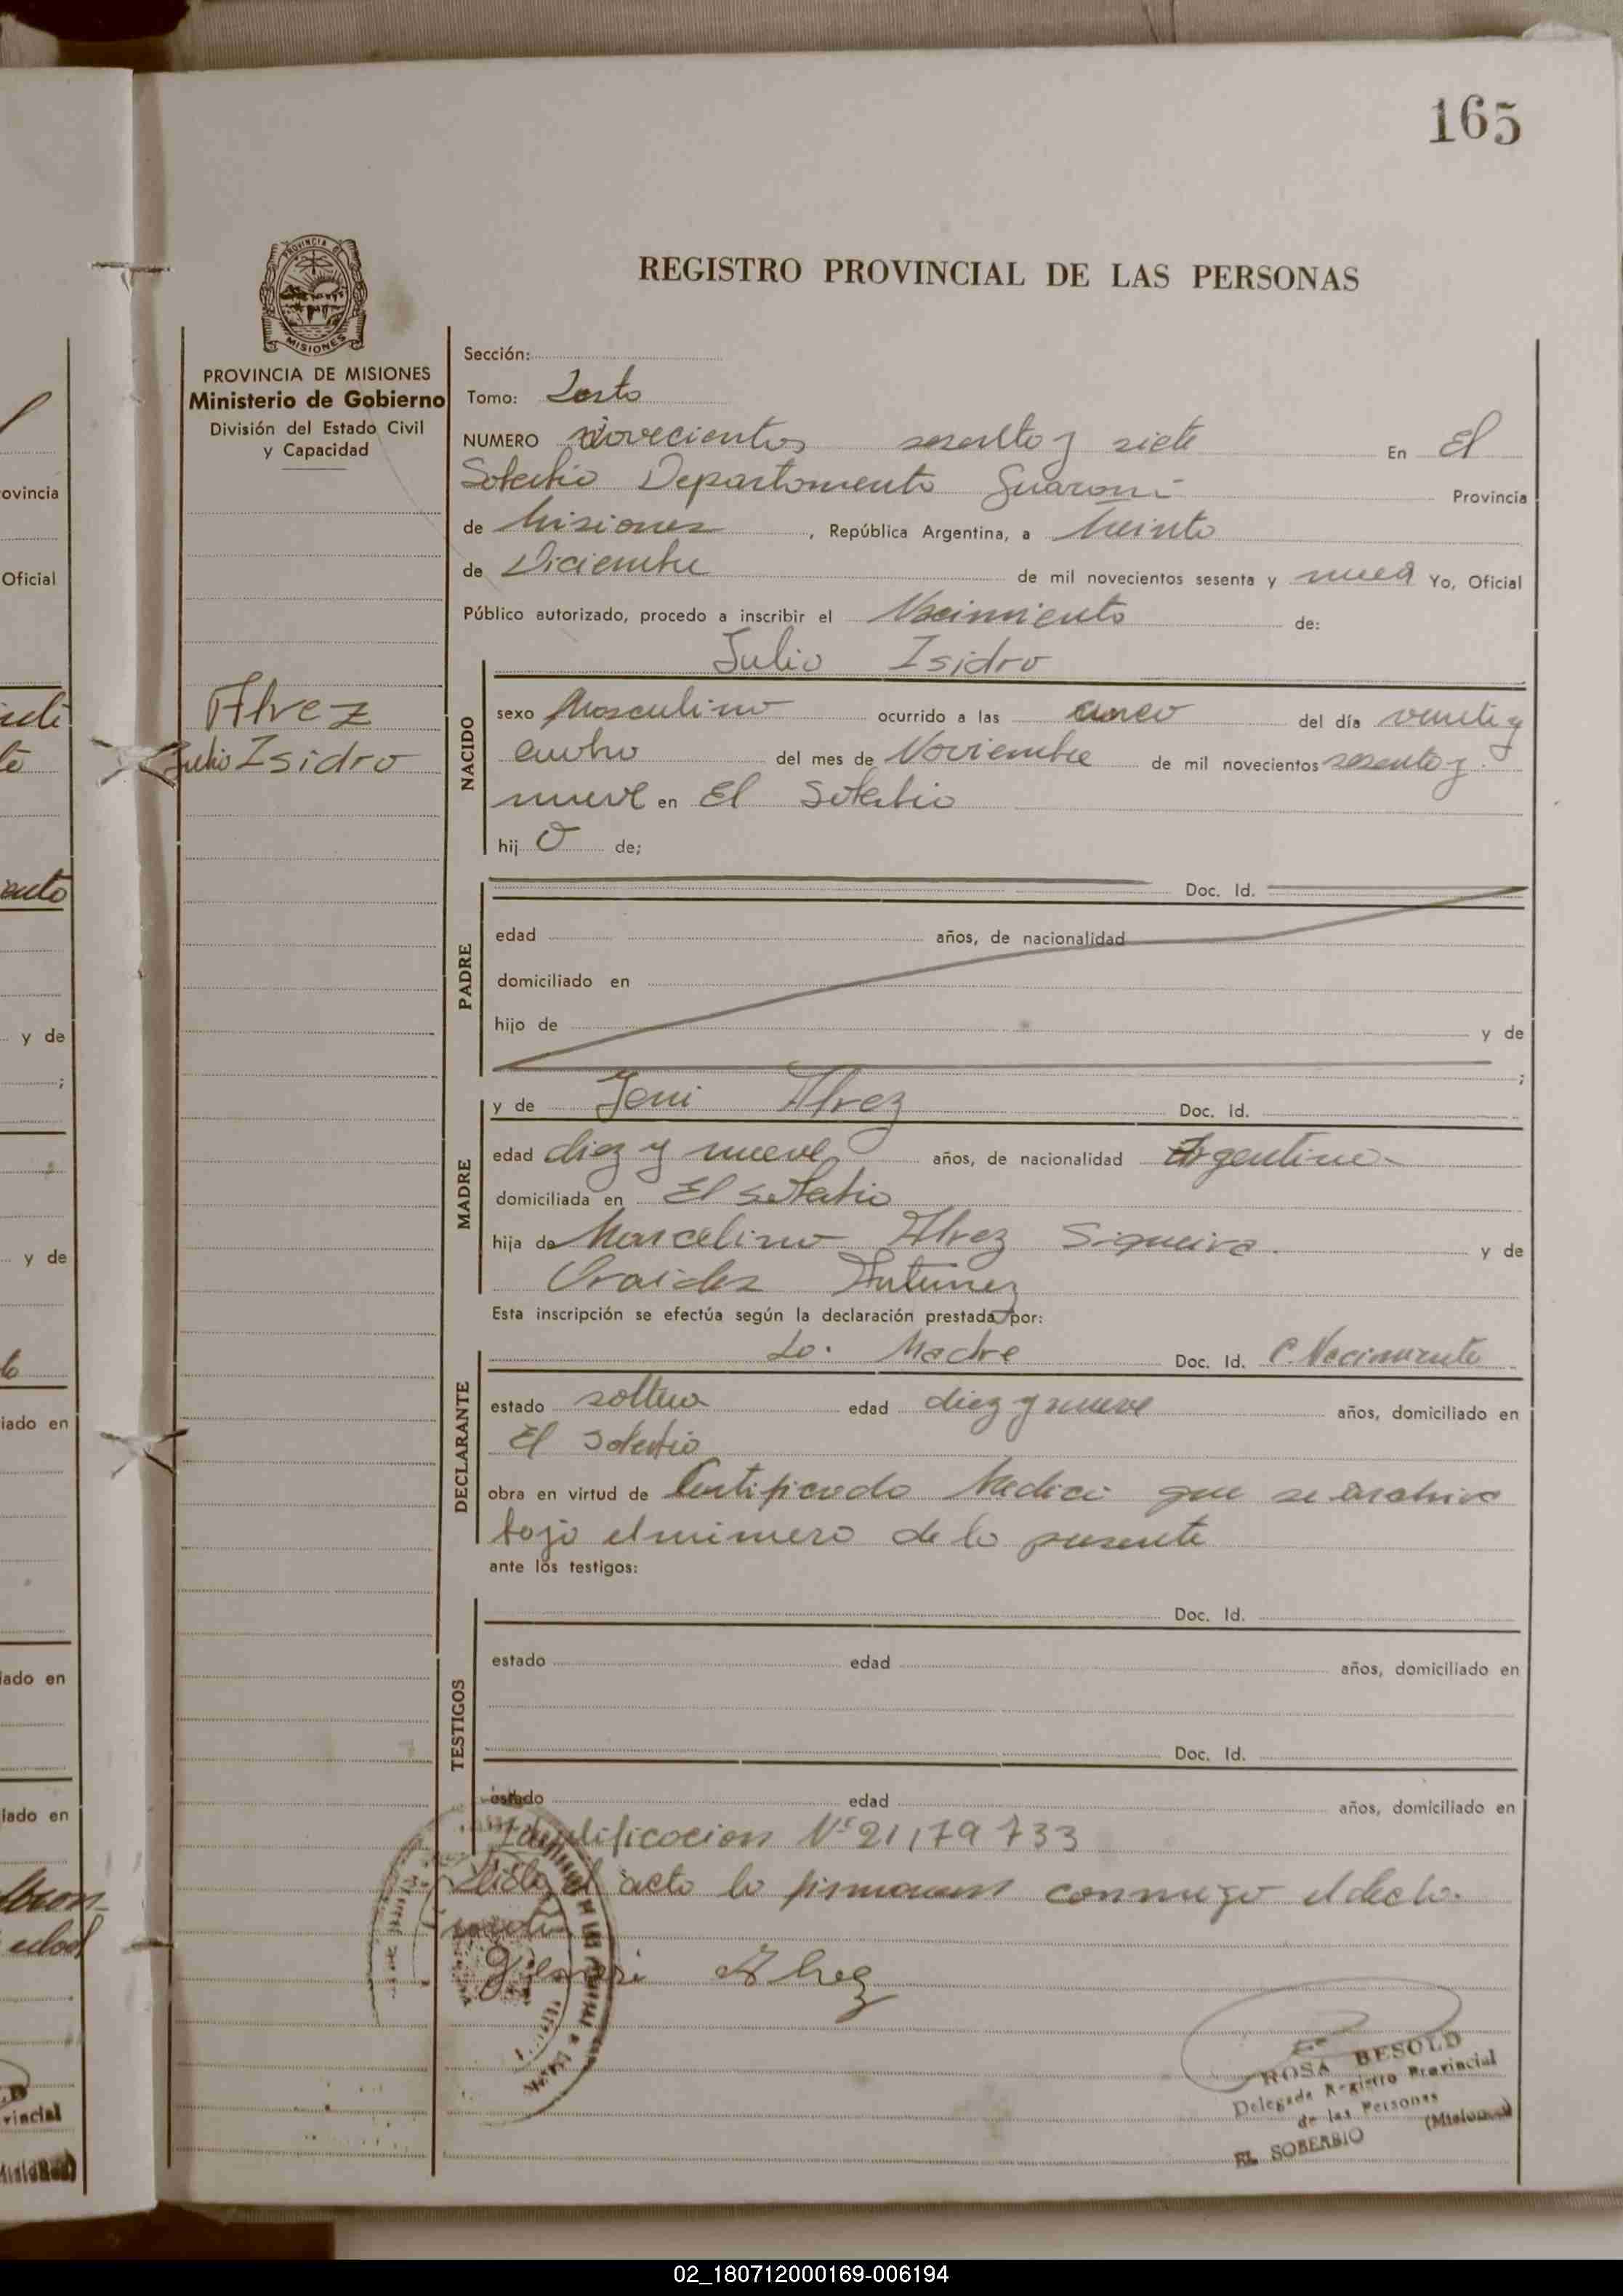 165
REGISTRO PROVINCIAL DE LAS PERSONAS
PROVINCIA DE
MISIONES
PROVINCIA DE MISIONES
Ministerio de Gobierno
División del Estado Civil
y Capacidad
Alvez
Julio Isidro
Sección:
Tomo: Sexto
NUMERO novecientos sesenta y siete En El
Soberbio Departamento Guaraní Provincia
de Misiones, República Argentina, a treinta
de Diciembre de mil novecientos sesenta y nueve Yo, Oficial
Público autorizado, procedo a inscribir el Nacimiento de:
Julio Isidro
NACIDO
sexo Masculino ocurrido a las cinco del día veinte y
cuatro del mes de Noviembre de mil novecientos sesenta y
nueve en El Soberbio
hij o de;
PADRE
Doc. Id.
edad años, de nacionalidad
domiciliado en
hijo de y de
;
MADRE
y de Jeni Alvez Doc. Id.
edad diez y nueve años, de nacionalidad Argentina
domiciliada en El Soberbio
hija de Marcelino Alvez Siqueira y de
Oraides Antunez
Esta inscripción se efectúa según la declaración prestada por:
DECLARANTE
La Madre Doc. Id. C. Nacimiento
estado soltera edad diez y nueve años, domiciliado en
El Soberbio
obra en virtud de Certificado Medico que se archiva
bajo el numero de la presente
ante los testigos:
TESTIGOS
Doc. Id.
estado edad años, domiciliado en
Doc. Id.
estado edad años, domiciliado en
Identificacion Nº 21,179733
el acto lo firmaron conmigo el decla-
Alvez
ROSA BESOLD
Delegada Registro Provincial
de las Personas
EL SOBERBIO (Misiones)
ovincia
Oficial
y de
;
y de
iado en
iado en
iado en
02_180712000169-006194